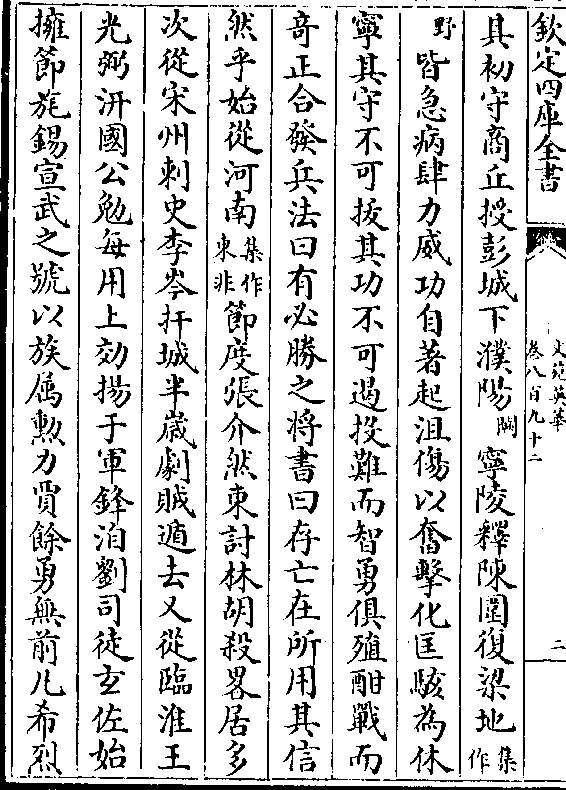 欽定四庫全書
文苑英華
卷八百九十二
二
其初守商丘授彭城下濮陽闕寧陵釋陳圍復梁地集作
野皆急病肆力威功自著起沮傷以奮擊化匡駭為休
寧其守不可拔其功不可遏投難而智勇俱殖酣戰而
竒正合發兵法曰有必勝之將書曰存亡在所用其信
然乎始從河南集作東非節度張介然東討林胡殺畧居多
次從宋州刺史李岑扞城半歲劇賊遁去又從臨淮王
光弼汧國公勉每用上効揚于軍鋒洎劉司徒玄佐始
擁節旄錫宣武之號以族属勲力賈餘勇無前凡希烈